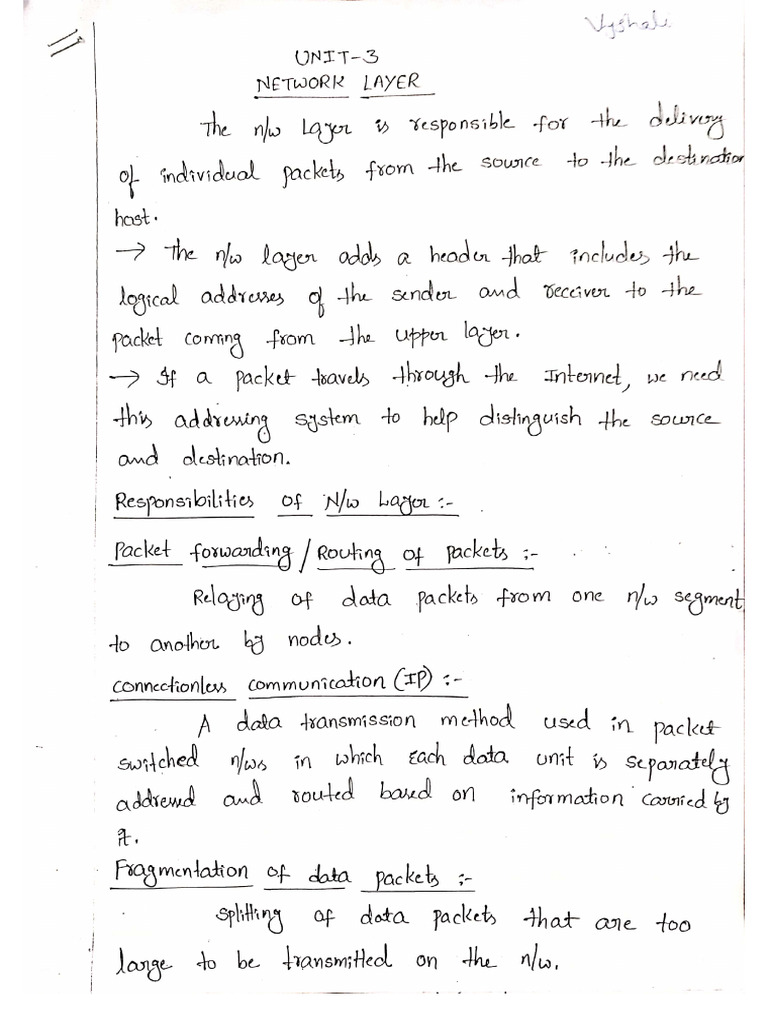 Vyshali
UNIT-3
NETWORK LAYER
The n/w Layer is responsible for the delivery
of individual packets from the source to the destination
host.
→ The n/w layer adds a header that includes the
logical addresses of the sender and receiver to the
packet coming from the upper layer.
→ If a packet travels through the Internet, we need
this addressing system to help distinguish the source
and destination.
Responsibilities of N/w Layer :-
Packet forwarding / Routing of packets :-
Relaying of data packets from one n/w segment
to another by nodes.
connectionless communication (IP) :-
A data transmission method used in packet
switched n/ws in which each data unit is separately
addressed and routed based on information carried by
it.
Fragmentation of data packets :-
Splitting of data packets that are too
large to be transmitted on the n/w.